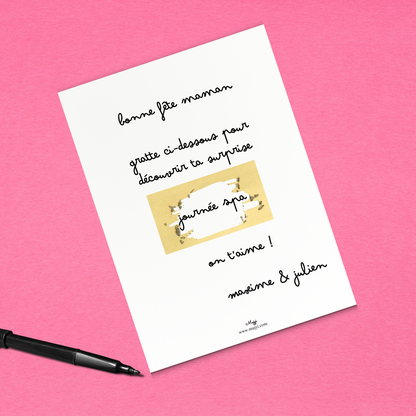 bonne fête maman
gratte ci-dessous pour
découvrir ta surprise
journée spa
on t'aime !
maxime & julien